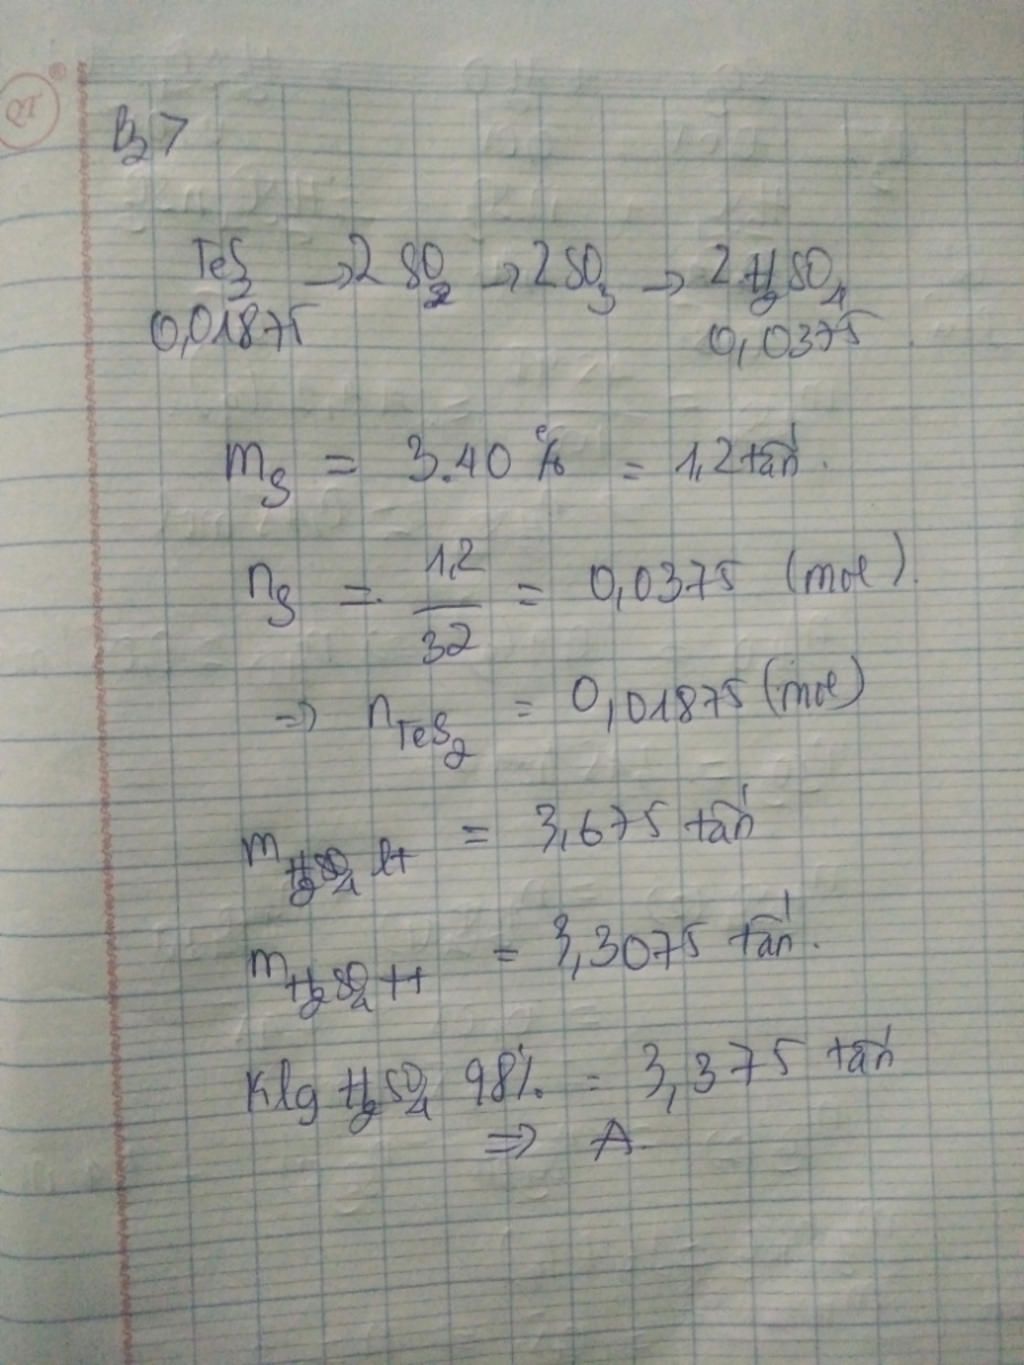 B7>
FeS2 → 2 SO2 → 2SO3 → 2 H2SO4
0,01875 0,0375
mS = 3.40% = 1,2 tấn.
nS = 1,2/32 = 0,0375 (mol).
=> nFeS2 = 0,01875 (mol)
mH2SO4 lt = 3,675 tấn
mH2SO4 tt = 3,3075 tấn.
Klg H2SO4 98% = 3,375 tấn
=> A.